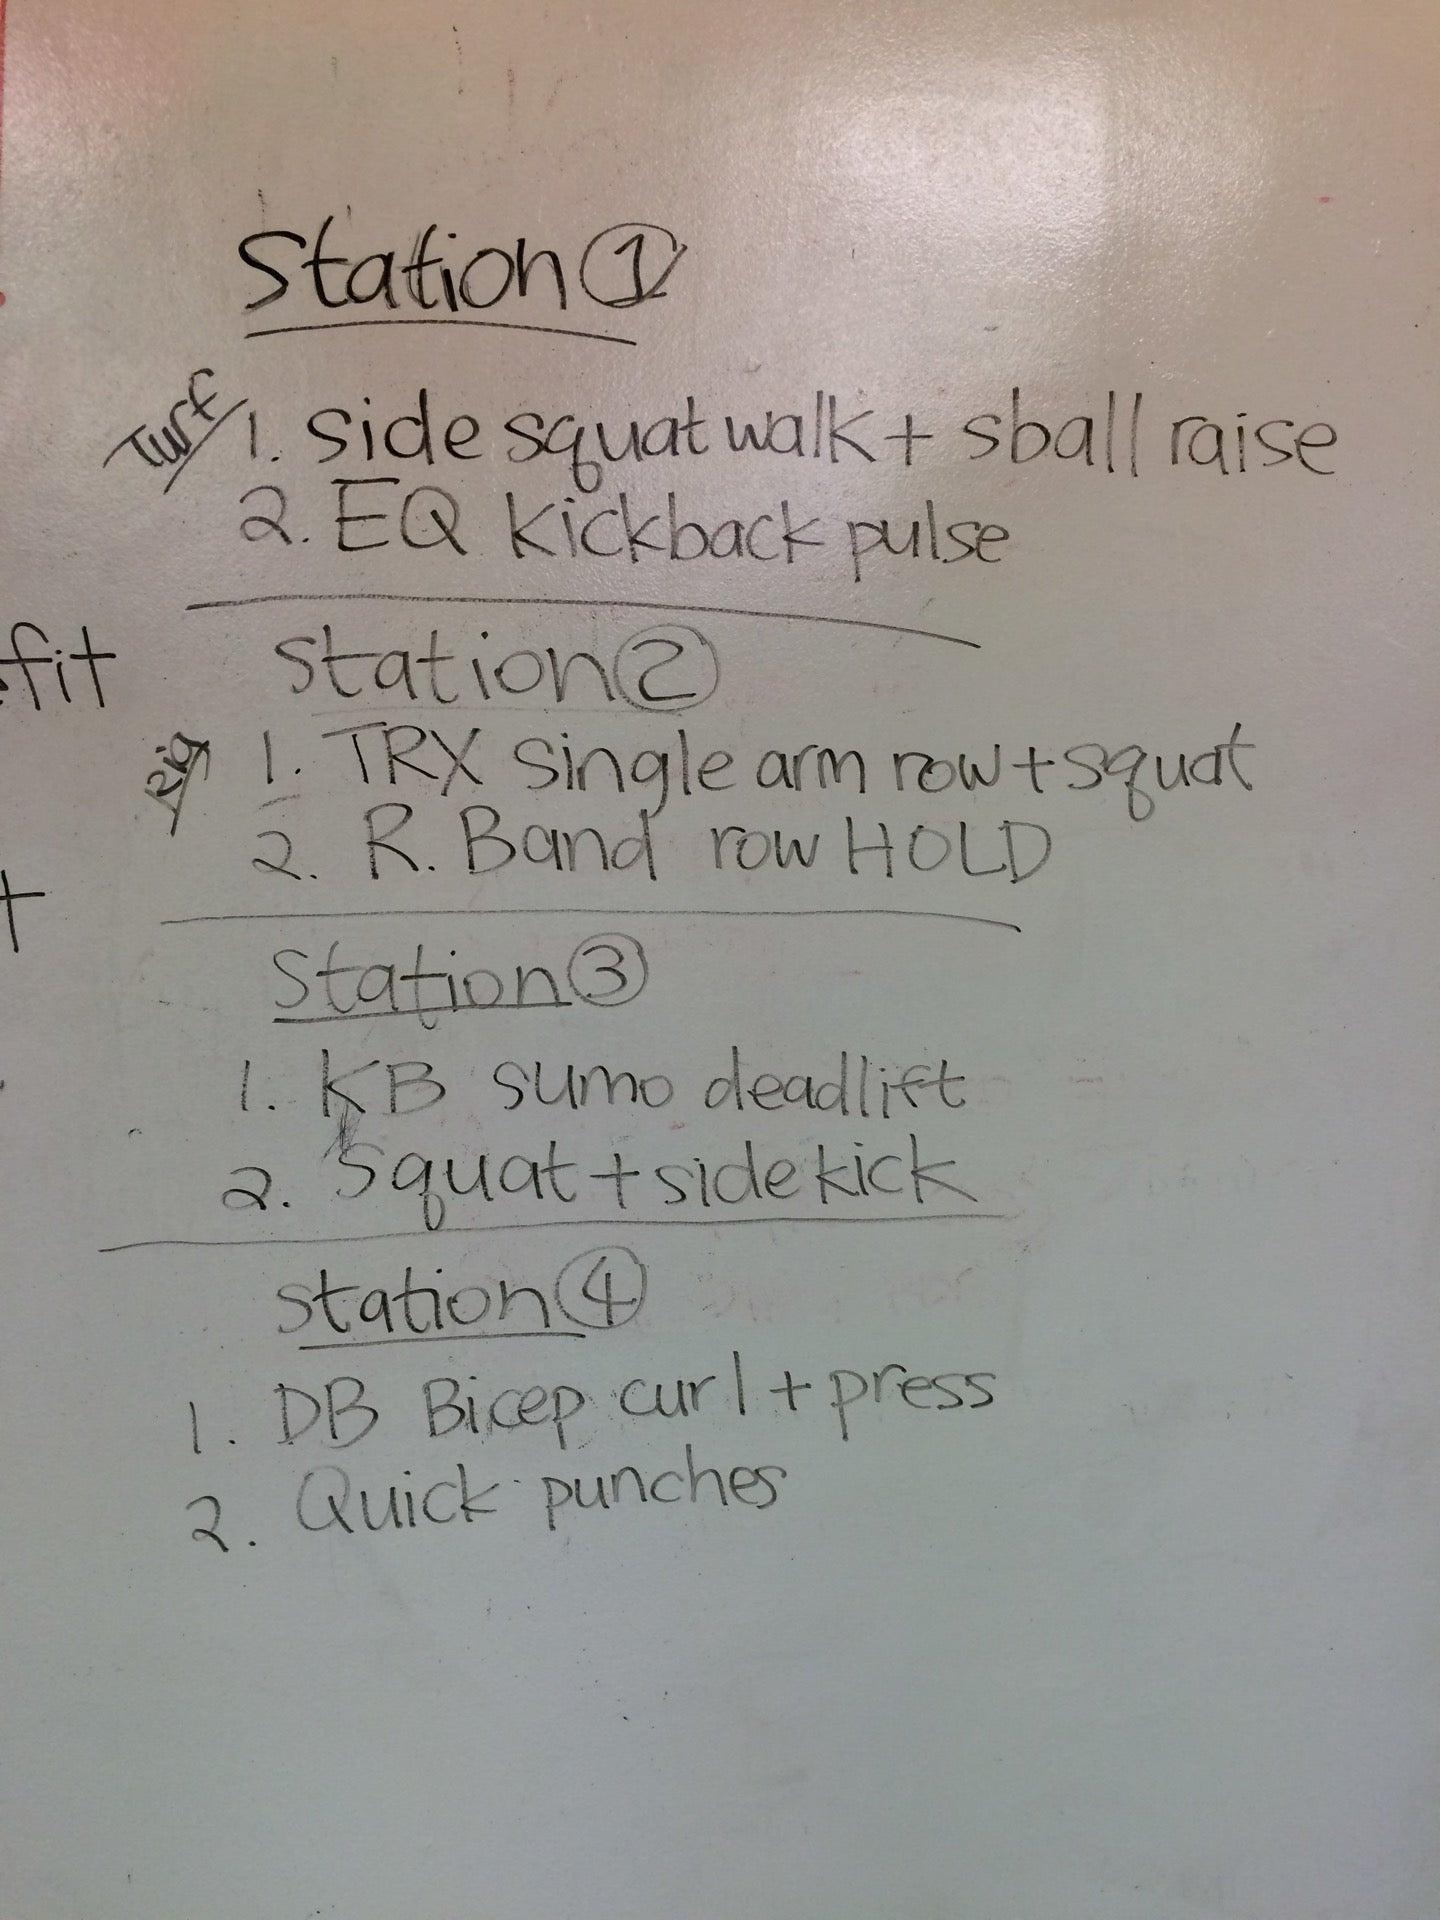 Station 1
Turf
1. side squat walk + sball raise
2. EQ kickback pulse
fit
Station 2
Rig
1. TRX single arm row + squat
2. R. Band row HOLD
t
Station 3
1. KB sumo deadlift
2. Squat + side kick
Station 4
1. DB Bicep curl + press
2. Quick punches